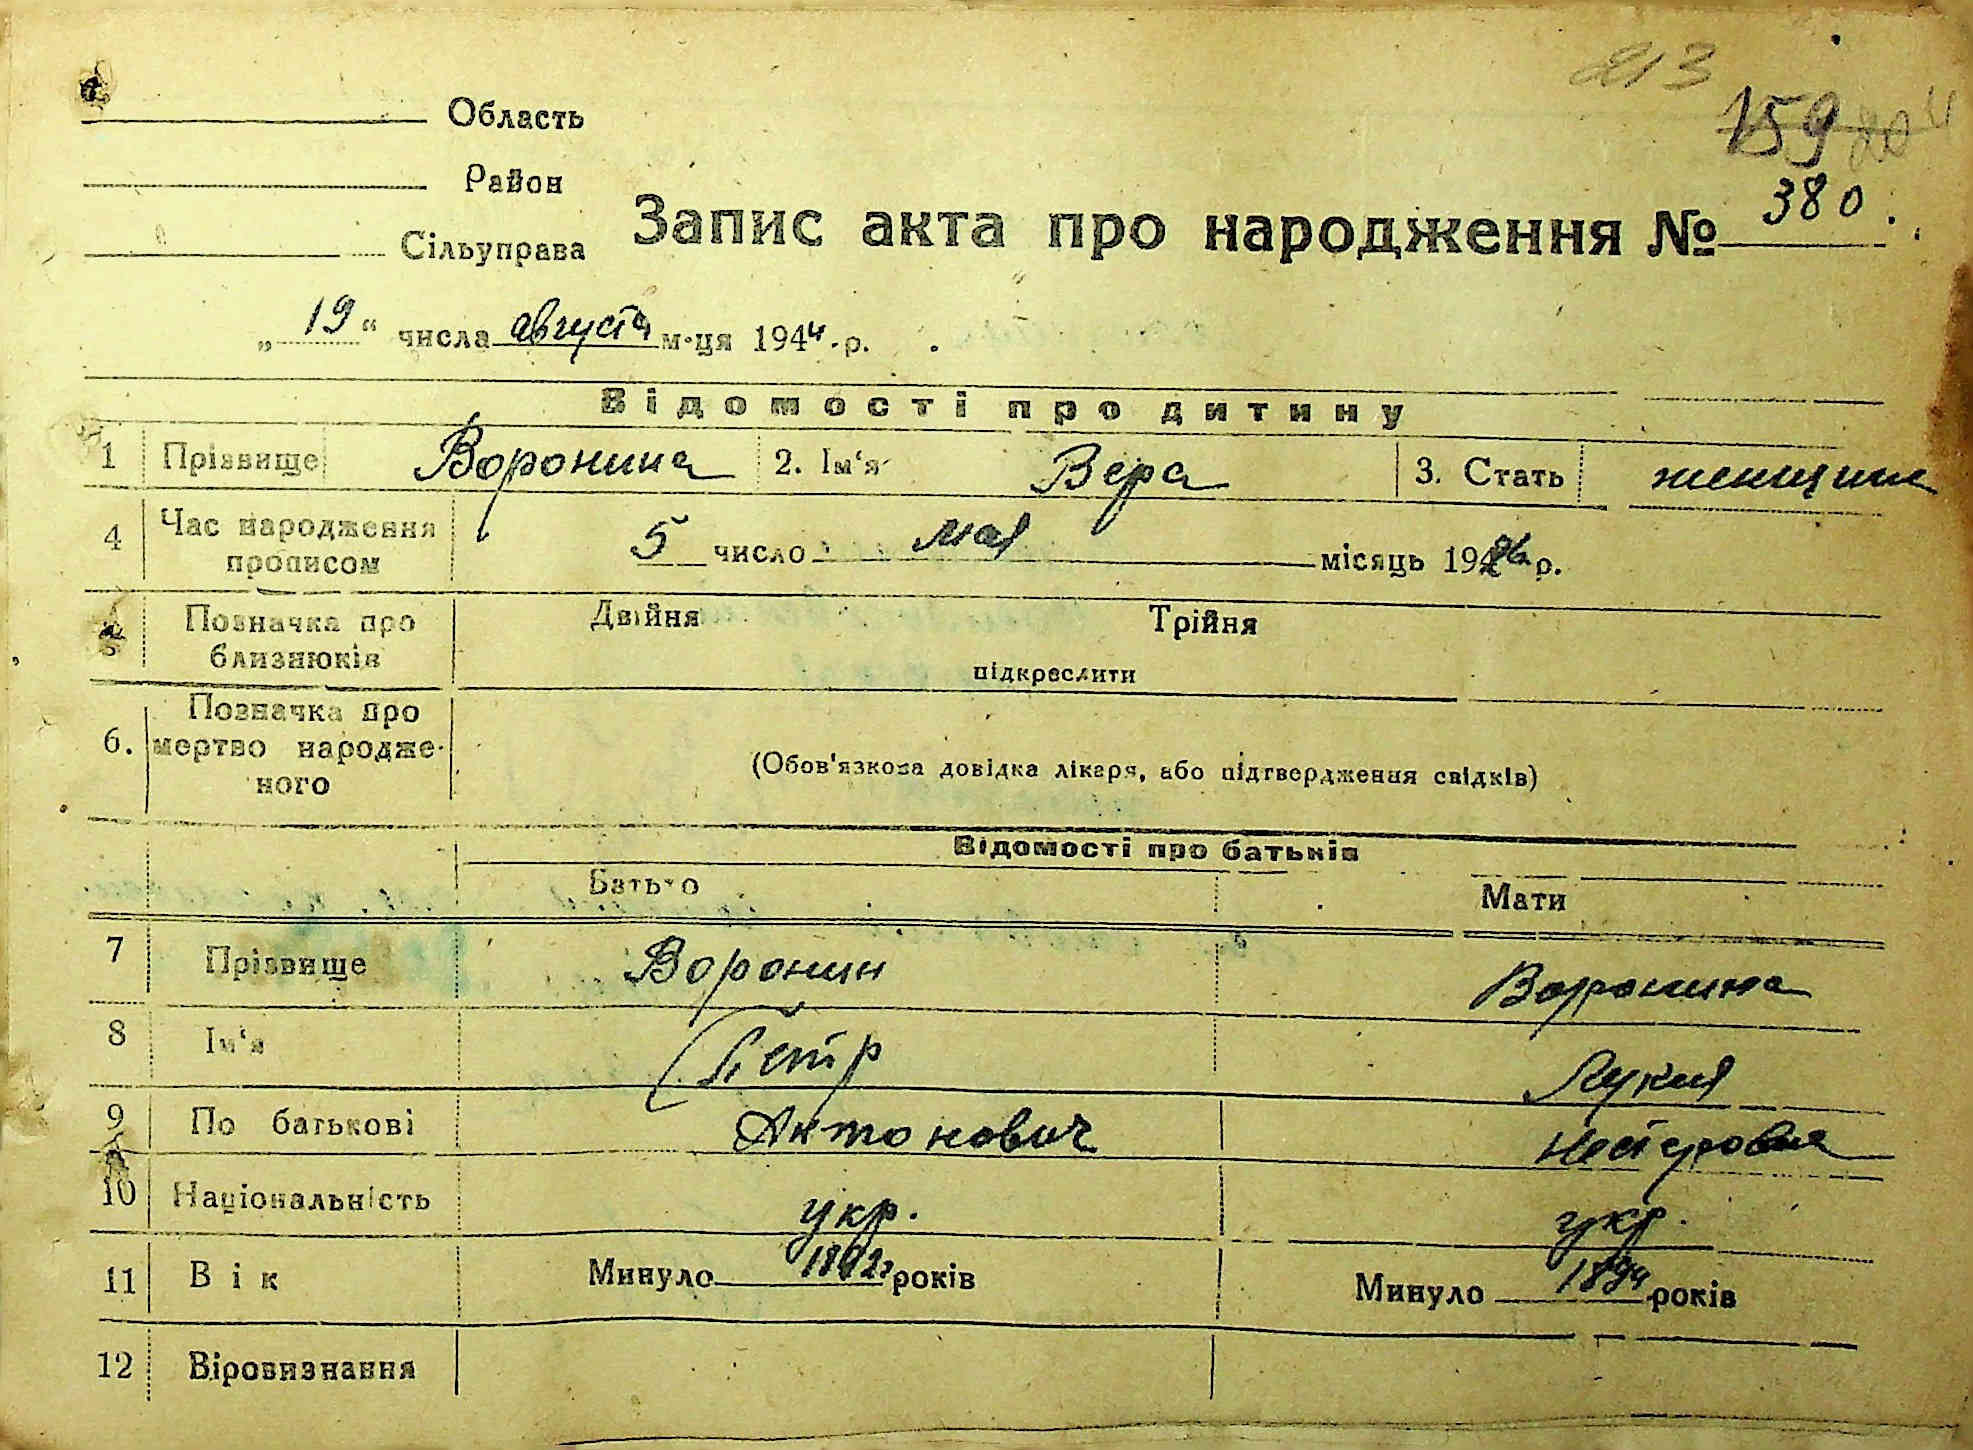 213
159 204
Область
Район
Сільуправа
Запис акта про народження № 380.
„19“ числа августа м-ця 1944 р.
Відомості про дитину
1 Прізвище Воронина 2. Ім‘я Вера 3. Стать женщина
4 Час народження прописом 5 число мая місяць 1926 р.
5 Позначка про близнюків Двійня Трійня
підкреслити
6. Позначка про мертво народже-
ного
(Обов'язкова довідка лікаря, або підтвердження свідків)
Відомості про батьків
Батько Мати
7 Прізвище Воронин Воронина
8 Ім‘я Петр Лукия
9 По батькові Антонович Нестеровна
10 Національність укр. укр.
11 Вік Минуло 1892 років Минуло 1894 років
12 Віровизнання